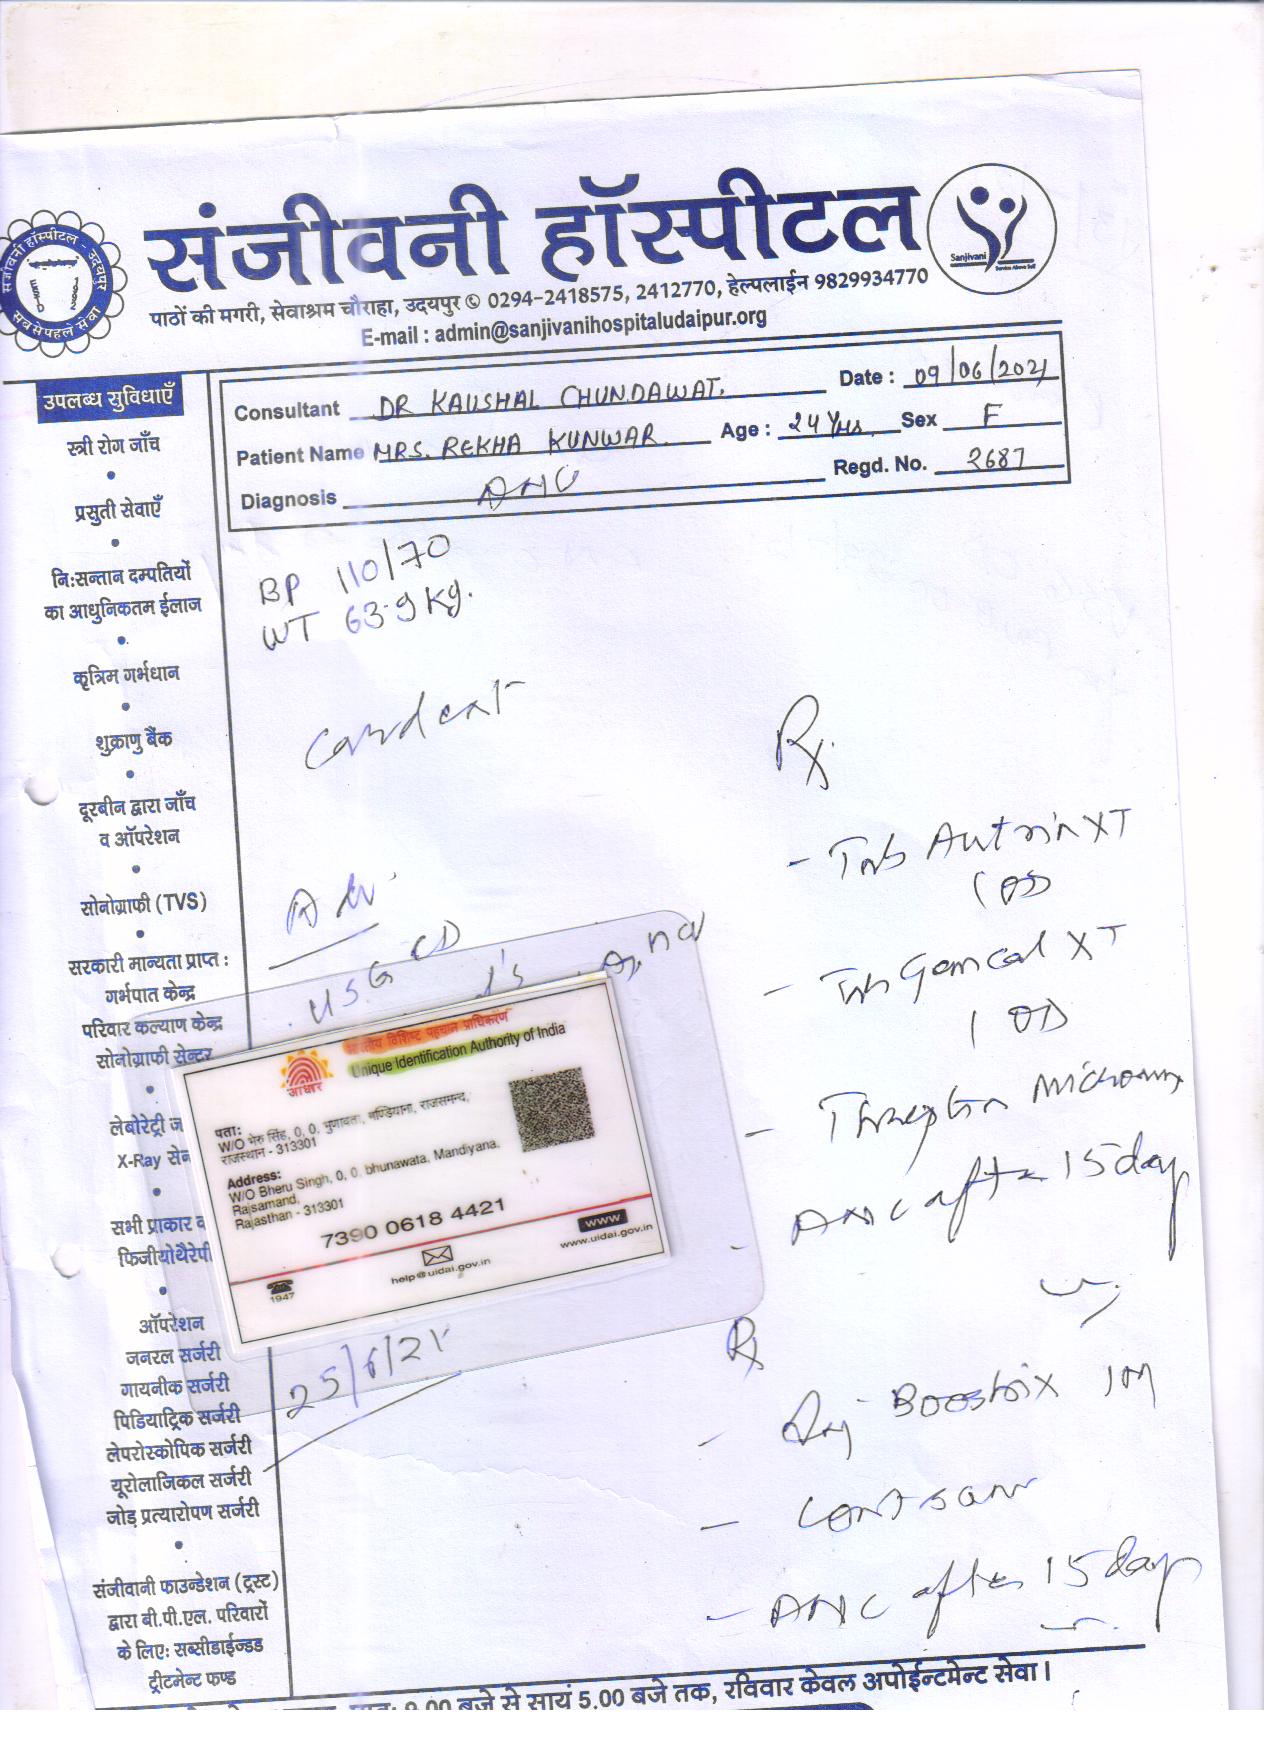 संजीवनी हॉस्पीटल - उदयपुर
सबसे पहले सेवा
संजीवनी हॉस्पीटल
Sanjivani
Service Above Self
पाठों की मगरी, सेवाश्रम चौराहा, उदयपुर 0294-2418575, 2412770, हेल्पलाईन 9829934770
E-mail : admin@sanjivanihospitaludaipur.org
Consultant DR KAUSHAL CHUNDAWAT. Date : 09/06/2021
Patient Name MRS. REKHA KUNWAR. Age : 24 Yrs. Sex F
Diagnosis ANC Regd. No. 2687
उपलब्ध सुविधाएँ
स्त्री रोग जाँच
प्रसुती सेवाएँ
नि:सन्तान दम्पतियों
का आधुनिकतम ईलाज
कृत्रिम गर्भधान
शुक्राणु बैंक
दूरबीन द्वारा जाँच
व ऑपरेशन
सोनोग्राफी (TVS)
सरकारी मान्यता प्राप्त :
गर्भपात केन्द्र
परिवार कल्याण केन्द्र
सोनोग्राफी सेन्टर
लेबोरेट्री ज
X-Ray सेन
सभी प्रकार व
फिजीयोथैरेपी
ऑपरेशन
जनरल सर्जरी
गायनीक सर्जरी
पिडियाट्रिक सर्जरी
लेपरोस्कोपिक सर्जरी
यूरोलाजिकल सर्जरी
जोड़ प्रत्यारोपण सर्जरी
संजीवानी फाउन्डेशन (ट्रस्ट)
द्वारा बी.पी.एल. परिवारों
के लिए: सब्सीडाईन्डड
ट्रीटमेन्ट फण्ड
BP 110/70
WT 63.9 Kg.
Adv.
USG
Rx
- Tab Autrin XT
1 OD
- Tab Gemcal XT
1 OD
- Threptin Micromix
- ANC after 15 day
भारतीय विशिष्ट पहचान प्राधिकरण
Unique Identification Authority of India
आधार
पता:
W/O भेरु सिंह, 0, 0, भुणावता, मण्डियाना, राजसमन्द,
राजस्थान - 313301
Address:
W/O Bheru Singh, 0, 0, bhunawata, Mandiyana,
Rajsamand,
Rajasthan - 313301
7390 0618 4421
1947
help@uidai.gov.in
www
www.uidai.gov.in
25/6/21
Rx
- Inj Boostrix IM
- Cont same
- ANC after 15 day
9.00 बजे से सायं 5.00 बजे तक, रविवार केवल अपोईन्टमेन्ट सेवा।